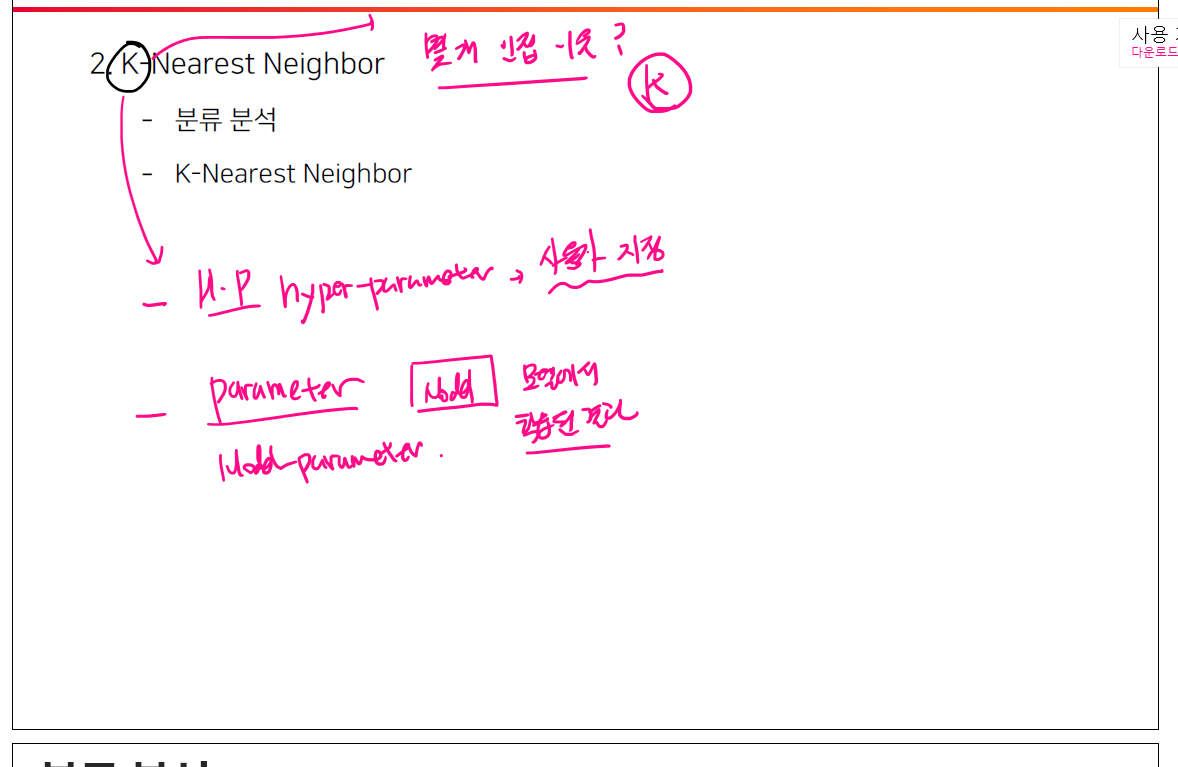 2. K-Nearest Neighbor
몇개 인접 이웃?
K
- 분류 분석
- K-Nearest Neighbor
- H.P hyper-parameter → 사용자 지정
- parameter Model 모델에서
학습된 결과
Model-parameter.
사용
다운로드
분류 분석